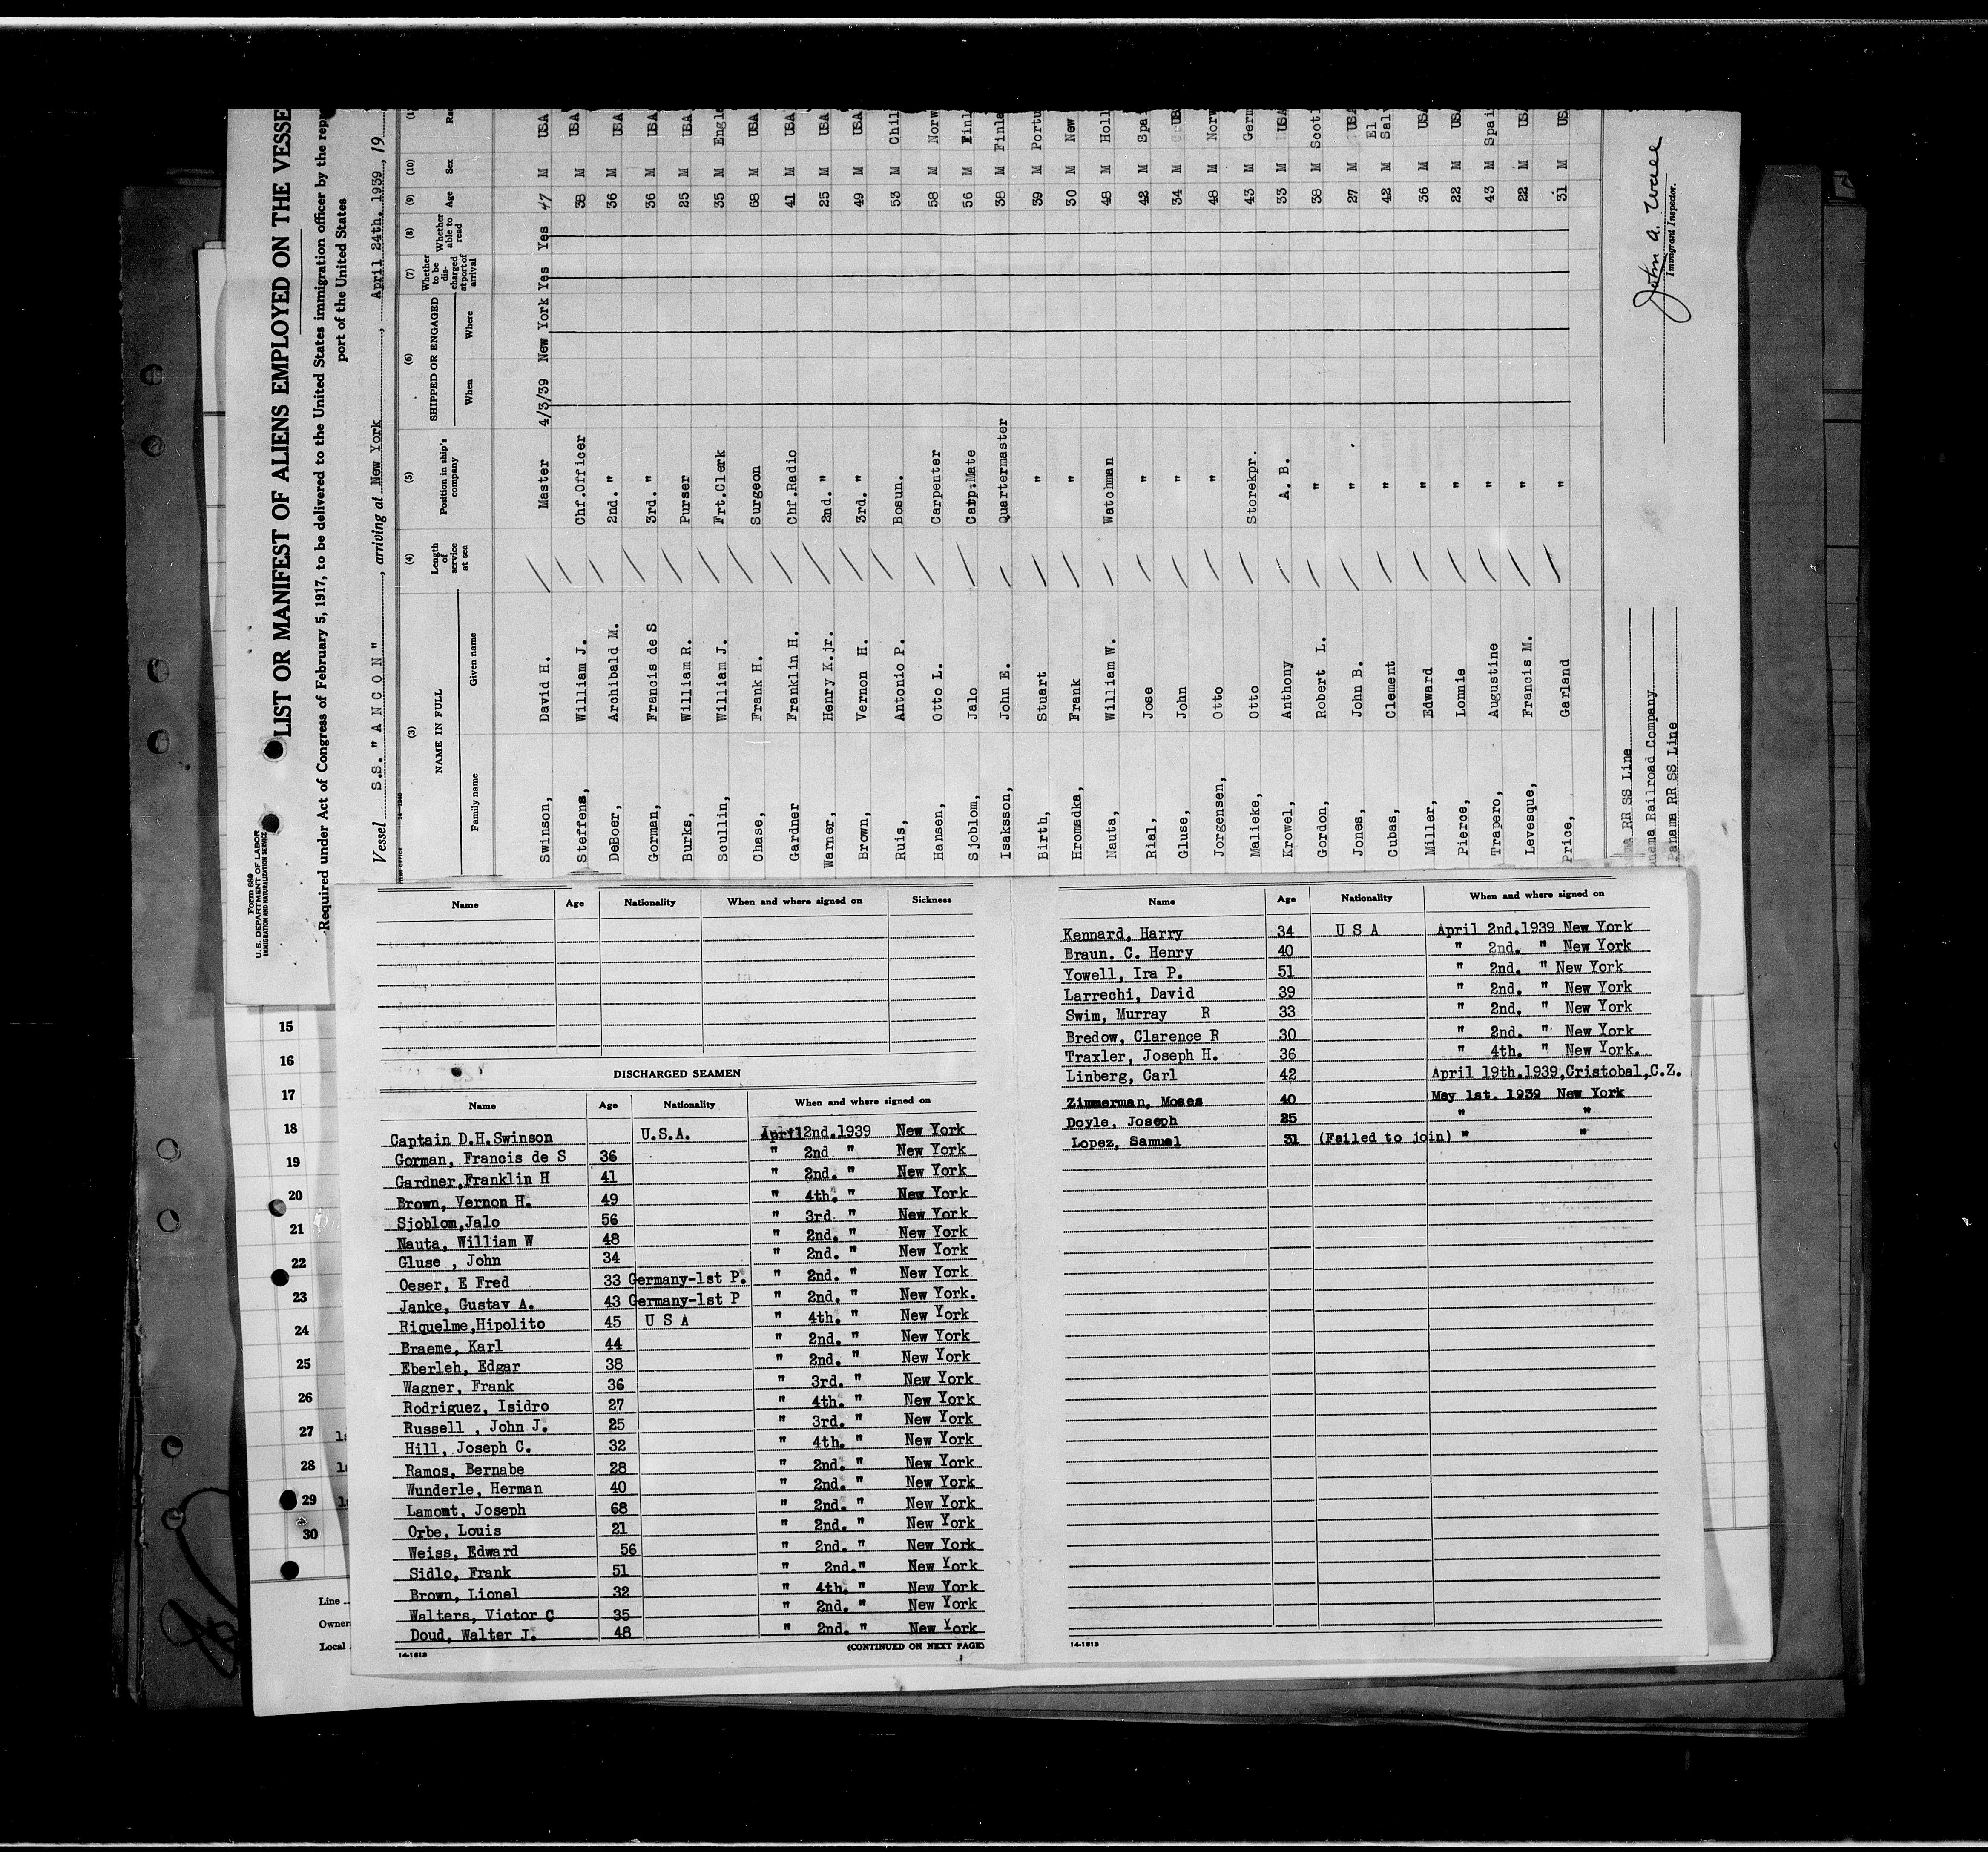 Form 689
U.S. DEPARTMENT OF LABOR
IMMIGRATION AND NATURALIZATION SERVICE
LIST OR MANIFEST OF ALIENS EMPLOYED ON THE VESSE
Required under Act of Congress of February 5, 1917, to be delivered to the United States immigration officer by the repr
port of the United States
Vessel S.S. "ANCON", arriving at New York, April 24th. 1939, 19
(3) (4) (5) (6) (7) (8) (9) (10)
NAME IN FULL Length of service at sea Position in ship's company SHIPPED OR ENGAGED Whether to be discharged at port of arrival Whether able to read Age Sex Ra
Family name Given name When Where
Swinson, David H. Master 4/3/39 New York Yes Yes 47 M USA
Steffens, William J. Chf.Officer 38 M USA
DeBoer, Archibald M. 2nd. " 36 M USA
Gorman, Francis de S 3rd. " 36 M USA
Burks, William R. Purser 25 M USA
Scullin, William J. Frt.Clerk 35 M Engla
Chase, Frank H. Surgeon 68 M USA
Gardner Franklin H. Chf.Radio 41 M USA
Warner, Henry K.jr. 2nd. " 25 M USA
Brown, Vernon H. 3rd. " 49 M USA
Ruis, Antonio P. Bosun. 53 M Chil
Hansen, Otto L. Carpenter 58 M Norw
Sjoblom, Jalo Carp.Mate 56 M Finl
Isaksson, John E. Quartermaster 38 M Finla
Birth, Stuart " 39 M Portu
Hromadka, Frank " 30 M New
Nauta, William W. Watchman 48 M Holl
Rial, Jose " 42 M Spai
Gluse, John " 34 M USA
Jorgensen, Otto " 48 M Norw
Malieke, Otto Storekpr. 43 M Germ
Krowel, Anthony A. B. 33 M USA
Gordon, Robert L. " 38 M Scotl
Jones, John B. " 27 M USA
Cubas, Clement " 42 M El Salv
Miller, Edward " 36 M USA
Pierce, Lonnie " 22 M USA
Trapero, Augustine " 43 M Spai
Levesque, Francis M. " 22 M USA
Price, Garland " 31 M USA
RR SS Line
nama Railroad Company
Panama RR SS Line
John A. Wall
Immigrant Inspector.
15
16
17
18
19
20
21
22
23
24
25
26
27
28
29
30
Line
Owner
Local
Name Age Nationality When and where signed on Sickness
DISCHARGED SEAMEN
Name Age Nationality When and where signed on
Captain D.H.Swinson U.S.A. April2nd.1939 New York
Gorman, Francis de S 36 " 2nd " New York
Gardner,Franklin H 41 " 2nd. " New York
Brown, Vernon H. 49 " 4th. " New York
Sjoblom,Jalo 56 " 3rd. " New York
Nauta, William W 48 " 2nd. " New York
Gluse , John 34 " 2nd. " New York
Oeser, E Fred 33 Germany-1st P. " 2nd. " New York
Janke, Gustav A. 43 Germany-1st P " 2nd. " New York.
Riquelme,Hipolito 45 U S A " 4th. " New York
Braeme, Karl 44 " 2nd. " New York
Eberleh, Edgar 38 " 2nd. " New York
Wagner, Frank 36 " 3rd. " New York
Rodriguez, Isidro 27 " 4th. " New York
Russell , John J. 25 " 3rd. " New York
Hill, Joseph C. 32 " 4th. " New York
Ramos, Bernabe 28 " 2nd. " New York
Wunderle, Herman 40 " 2nd. " New York
Lamont, Joseph 68 " 2nd. " New York
Orbe, Louis 21 " 2nd. " New York
Weiss, Edward 56 " 2nd. " New York
Sidlo, Frank 51 " 2nd." New York
Brown, Lionel 32 " 4th. " New York
Walters, Victor C 35 " 2nd. " New York
Doud, Walter J. 48 " 2nd. " New York
(CONTINUED ON NEXT PAGE)
14-1613
Name Age Nationality When and where signed on
Kennard, Harry 34 U S A April 2nd.1939 New York
Braun. C. Henry 40 " 2nd. " New York
Yowell, Ira P. 51 " 2nd. " New York
Larrechi, David 39 " 2nd. " New York
Swim, Murray R 33 " 2nd. " New York
Bredow, Clarence R 30 " 2nd. " New York
Traxler, Joseph H. 36 " 4th. " New York.
Linberg, Carl 42 April 19th.1939,Cristobal,C.Z.
Zimmerman, Moses 40 May 1st. 1939 New York
Doyle, Joseph 25 " "
Lopez, Samuel 31 (Failed to join) " "
14-1613